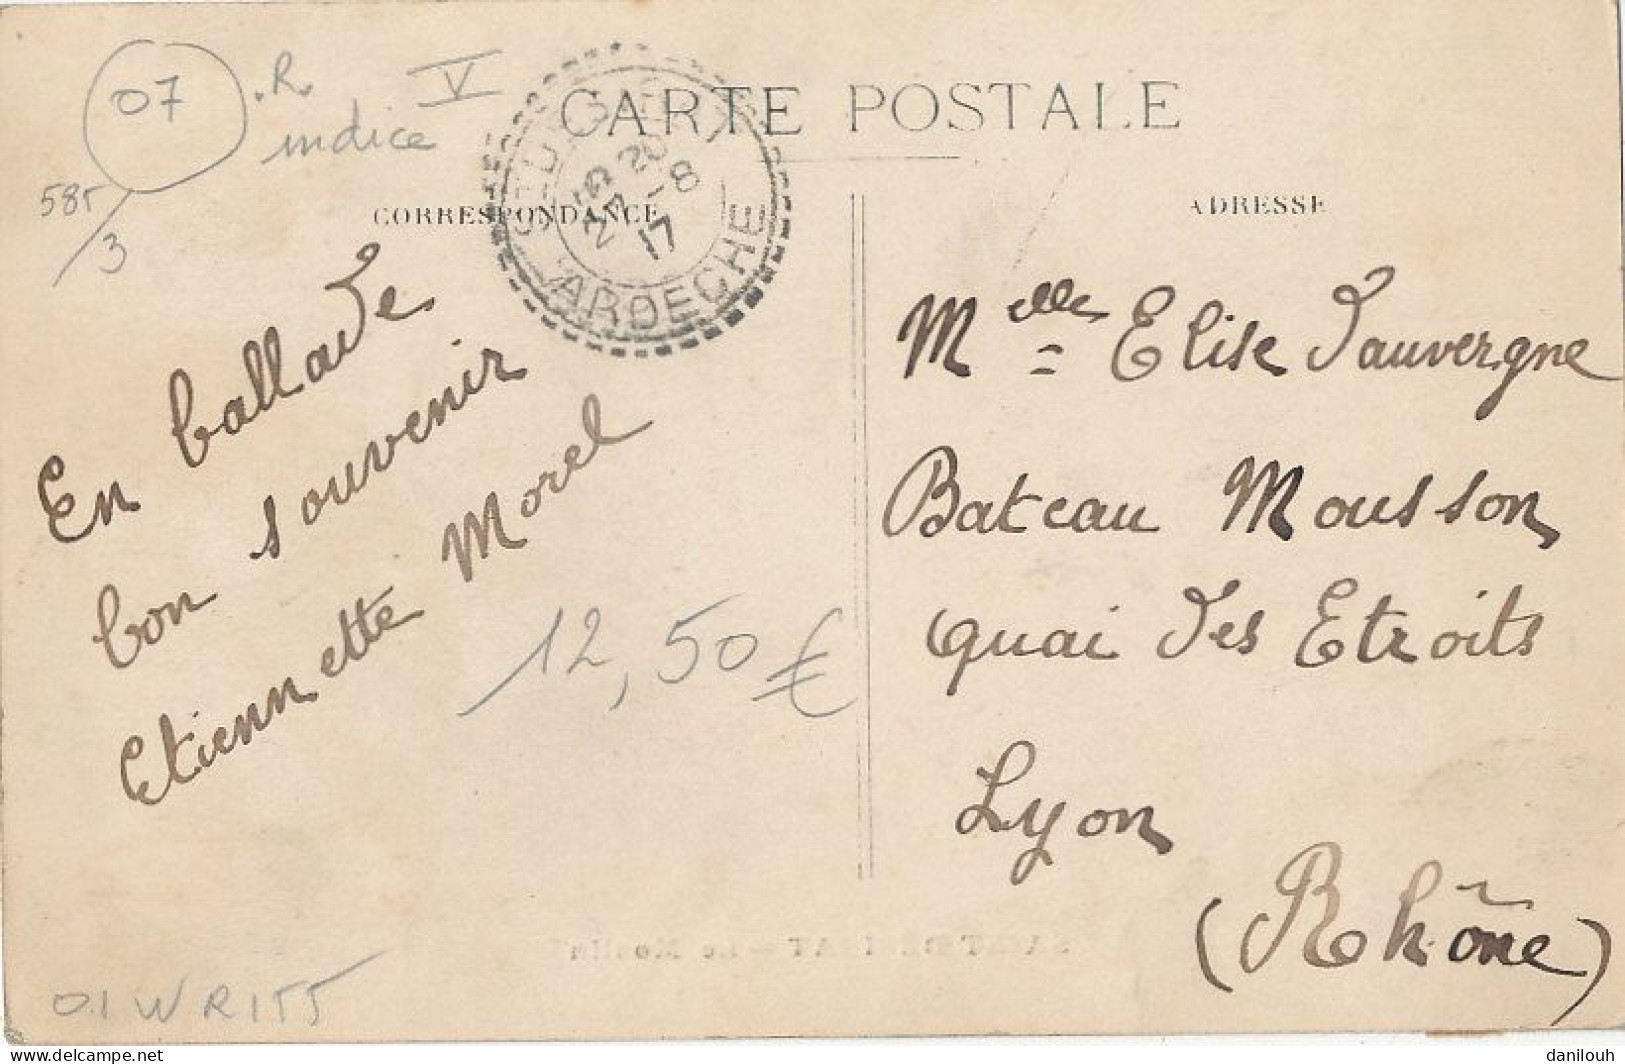 07
.R. V
indice
585
3
CARTE POSTALE
CORRESPONDANCE
ADRESSE
20
27 -8
17
ARDECHE
En ballade
bon souvenir
Etiennette Morel
12,50€
Melle Elise Dauvergne
Bateau Mousson
quai des Etroits
Lyon
(Rhône)
01WR155
www.delcampe.net
danilouh